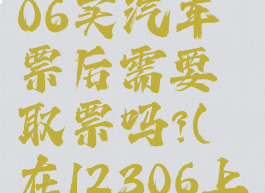 06买汽车
票后需要
取票吗?(
在12306上